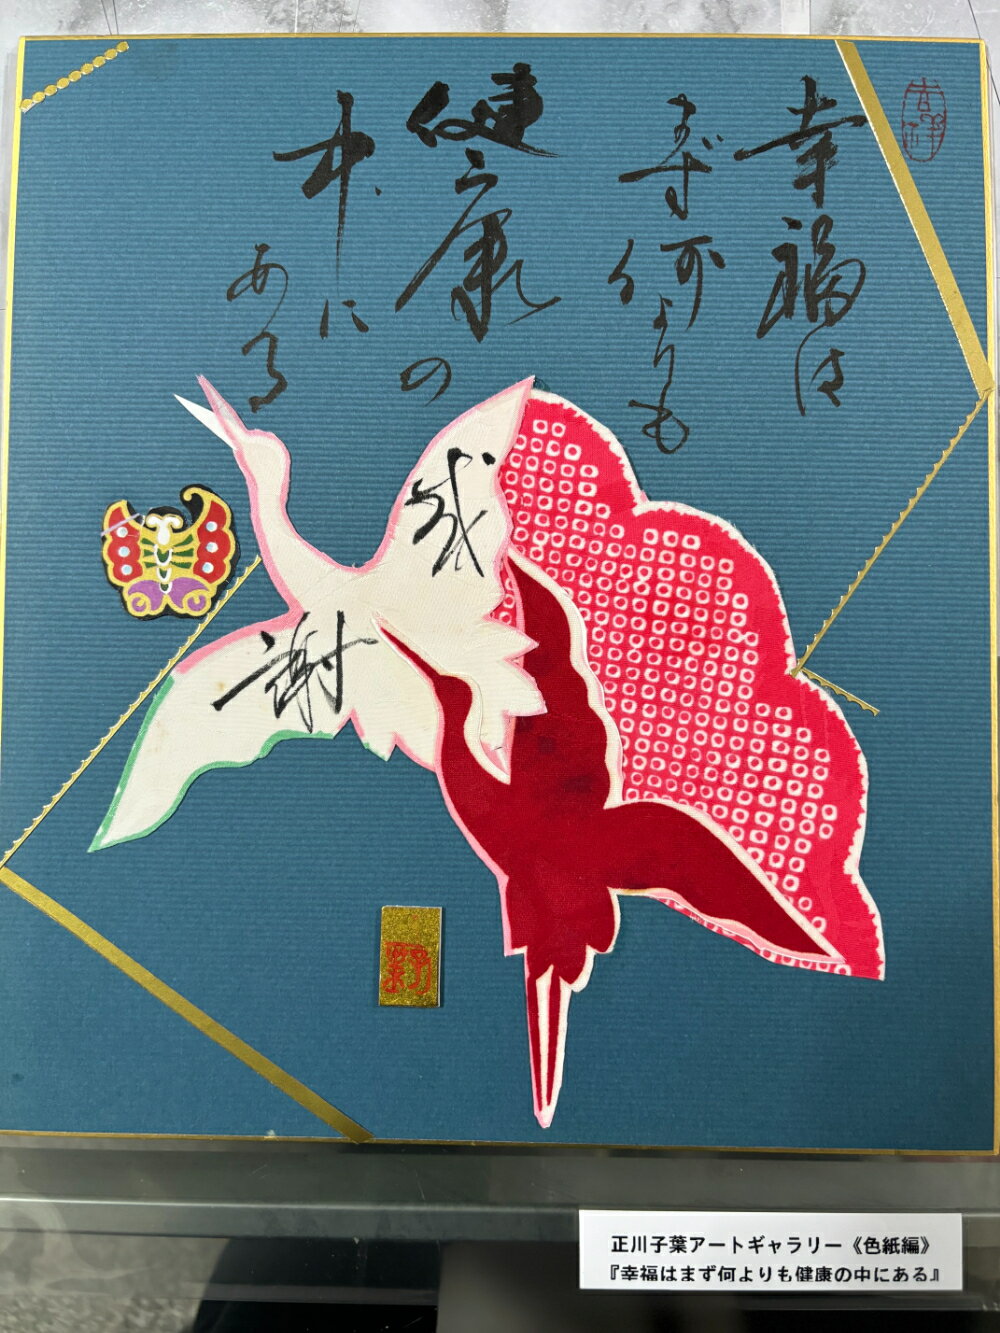 幸福は
まず何よりも
健康の
中に
ある
感
謝
吉祥
正川子葉アートギャラリー《色紙編》
『幸福はまず何よりも健康の中にある』